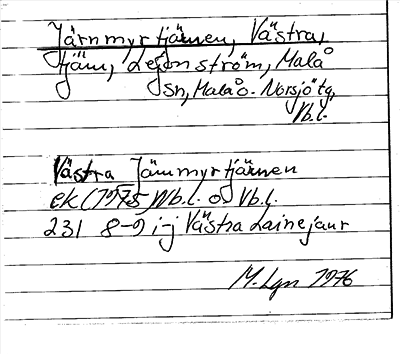 Järnmyrtjärnen, Västra,
tjärn, Lejonström, Malå
sn, Malå o. Norsjö tg,
Vb.l.
Västra Järnmyrtjärnen
ek (1975) Nb.l. o Vb.l.
231 8-9 i-j Västra Lainejaur
M. Lgn 1976